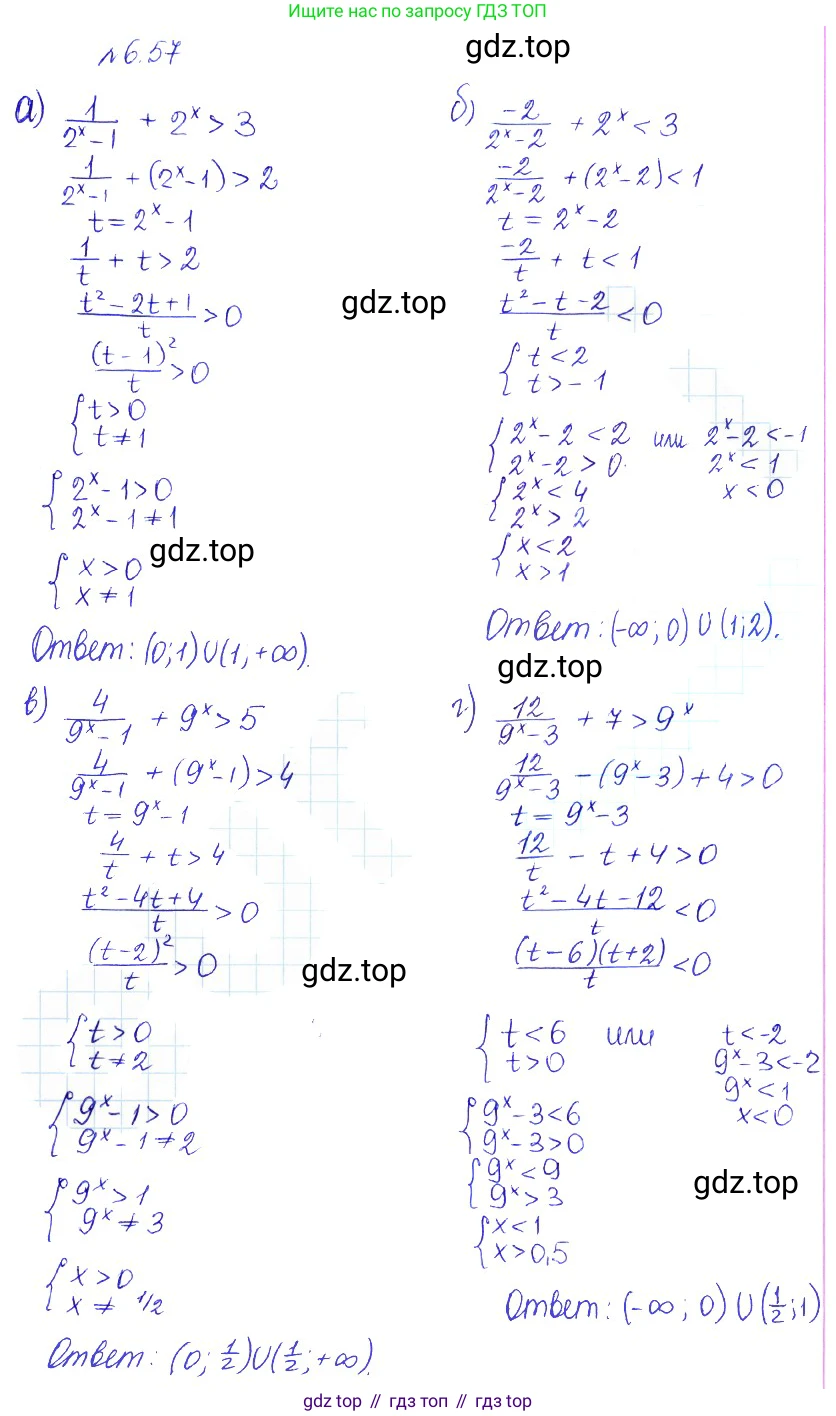 Ищите нас по запросу ГДЗ ТОП
№6.57
gdz.top
а) 1/(2^x − 1) + 2^x > 3
1/(2^x − 1) + (2^x − 1) > 2
t = 2^x − 1
1/t + t > 2
(t² − 2t + 1)/t > 0
(t − 1)²/t > 0
{ t > 0
t ≠ 1
{ 2^x − 1 > 0
2^x − 1 ≠ 1
{ x > 0
x ≠ 1
gdz.top
Ответ: (0; 1) ∪ (1, +∞).
б) −2/(2^x − 2) + 2^x < 3
−2/(2^x − 2) + (2^x − 2) < 1
t = 2^x − 2
−2/t + t < 1
gdz.top
(t² − t − 2)/t < 0
{ t < 2
t > −1
{ 2^x − 2 < 2 или 2^x − 2 < −1
2^x − 2 > 0. 2^x < 1
{ 2^x < 4 x < 0
2^x > 2
{ x < 2
x > 1
Ответ: (−∞; 0) ∪ (1; 2).
gdz.top
в) 4/(9^x − 1) + 9^x > 5
4/(9^x − 1) + (9^x − 1) > 4
t = 9^x − 1
4/t + t > 4
(t² − 4t + 4)/t > 0
(t − 2)²/t > 0
gdz.top
{ t > 0
t ≠ 2
{ 9^x − 1 > 0
9^x − 1 ≠ 2
{ 9^x > 1
9^x ≠ 3
{ x > 0
x ≠ 1/2
Ответ: (0; 1/2) ∪ (1/2; +∞).
г) 12/(9^x − 3) + 7 > 9^x
12/(9^x − 3) − (9^x − 3) + 4 > 0
t = 9^x − 3
12/t − t + 4 > 0
(t² − 4t − 12)/t < 0
(t − 6)(t + 2)/t < 0
{ t < 6 или t < −2
t > 0 9^x − 3 < −2
9^x < 1
{ 9^x − 3 < 6 x < 0
9^x − 3 > 0
{ 9^x < 9
9^x > 3
gdz.top
{ x < 1
x > 0,5
Ответ: (−∞; 0) ∪ (1/2; 1)
gdz top // гдз топ // gdz.top